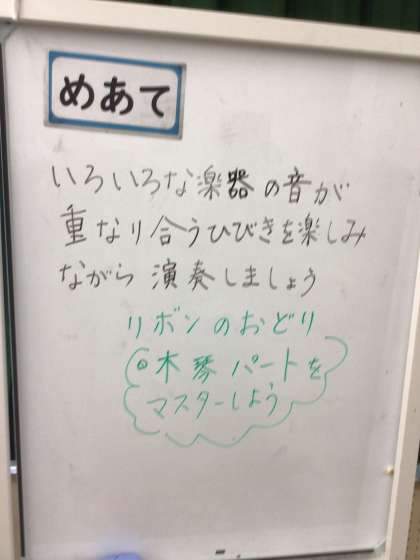 めあて
いろいろな楽器の音が
重なり合うひびきを楽しみ
ながら 演奏しましょう
リボンのおどり
◎木琴パートを
マスターしよう